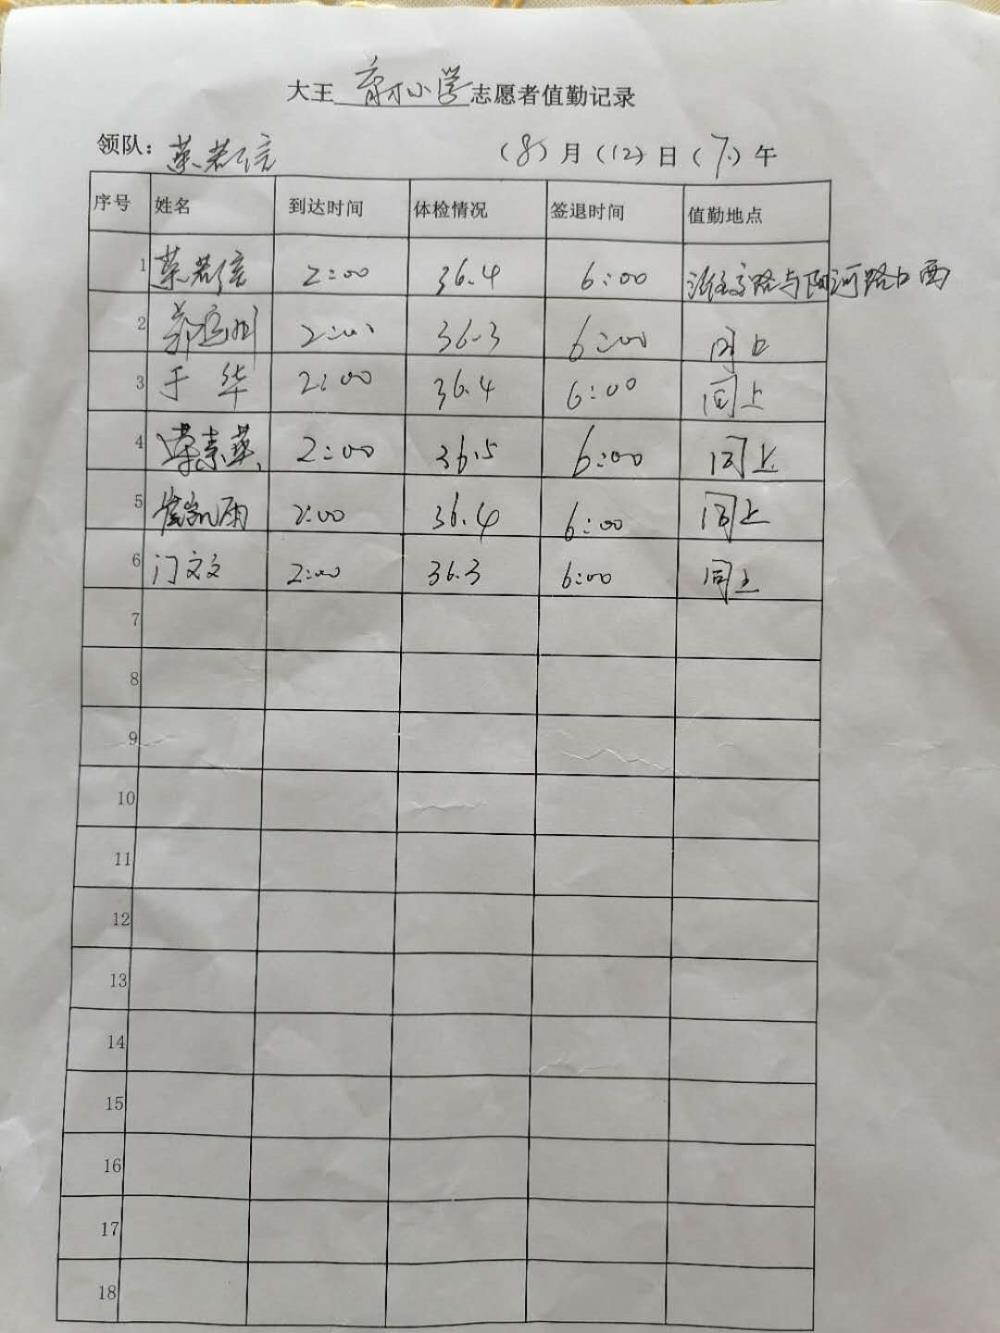 大王育才小学志愿者值勤记录
领队：荣若信 （8）月（12）日（下）午
序号 姓名 到达时间 体检情况 签退时间 值勤地点
1 荣若信 2:00 36.4 6:00 路与阳河路口西
2 2:00 36.3 6:00 同上
3 于华 2:00 36.4 6:00 同上
4 荣素英 2:00 36.5 6:00 同上
5 崔凯雨 2:00 36.4 6:00 同上
6 门文文 2:00 36.3 6:00 同上
7
8
9
10
11
12
13
14
15
16
17
18